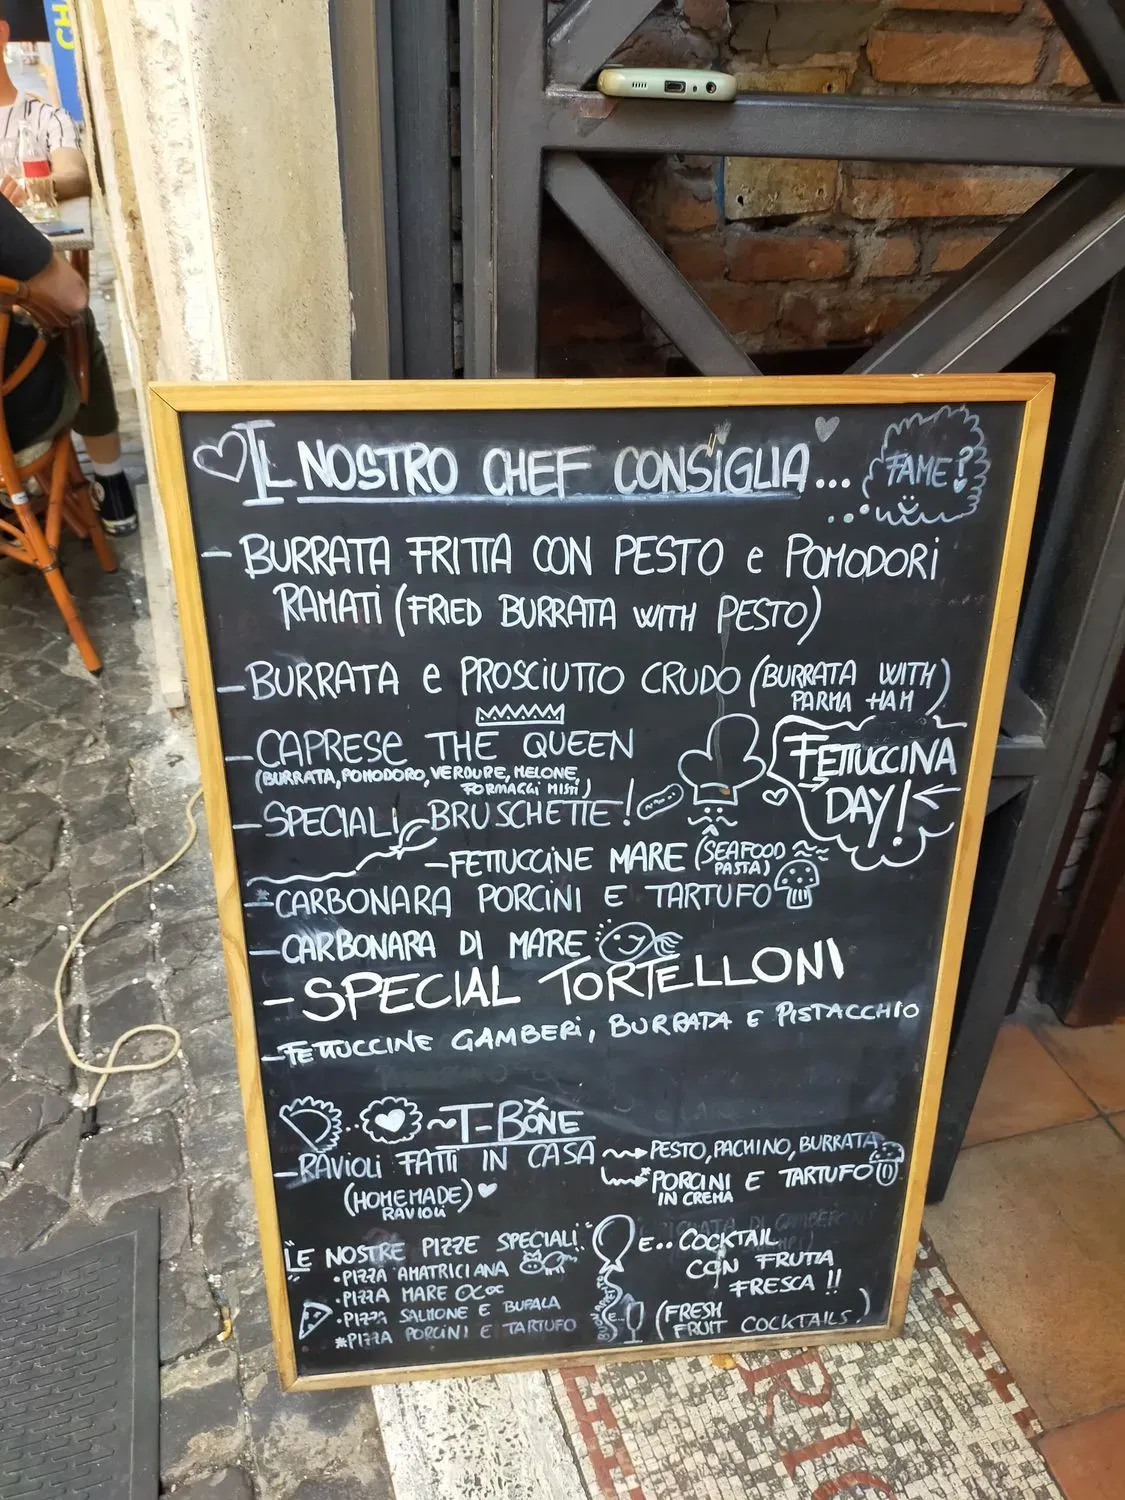 CH
IL NOSTRO CHEF CONSIGLIA...
FAME?
- BURRATA FRITTA CON PESTO e POMODORI
RAMATI (FRIED BURRATA WITH PESTO)
- BURRATA e PROSCIUTTO CRUDO (BURRATA WITH
PARMA HAM)
- CAPRESE THE QUEEN
(BURRATA, POMODORO, VERDURE, MELONE,
FORMAGGI MISTI)
FETTUCCINA
DAY!
- SPECIALI BRUSCHETTE!
- FETTUCCINE MARE (SEAFOOD
PASTA)
- CARBONARA PORCINI E TARTUFO
- CARBONARA DI MARE
- SPECIAL TORTELLONI
- FETTUCCINE GAMBERI, BURRATA E PISTACCHIO
~T-BONE
- RAVIOLI FATTI IN CASA
(HOMEMADE)
RAVIOLI
PESTO, PACHINO, BURRATA
PORCINI E TARTUFO
IN CREMA
"LE NOSTRE PIZZE SPECIALI"
• PIZZA AMATRICIANA
• PIZZA MARE
• PIZZA SALMONE E BUFALA
* PIZZA PORCINI E TARTUFO
E.. COCKTAIL
CON FRUTTA
FRESCA !!
(FRESH
FRUIT COCKTAILS!)